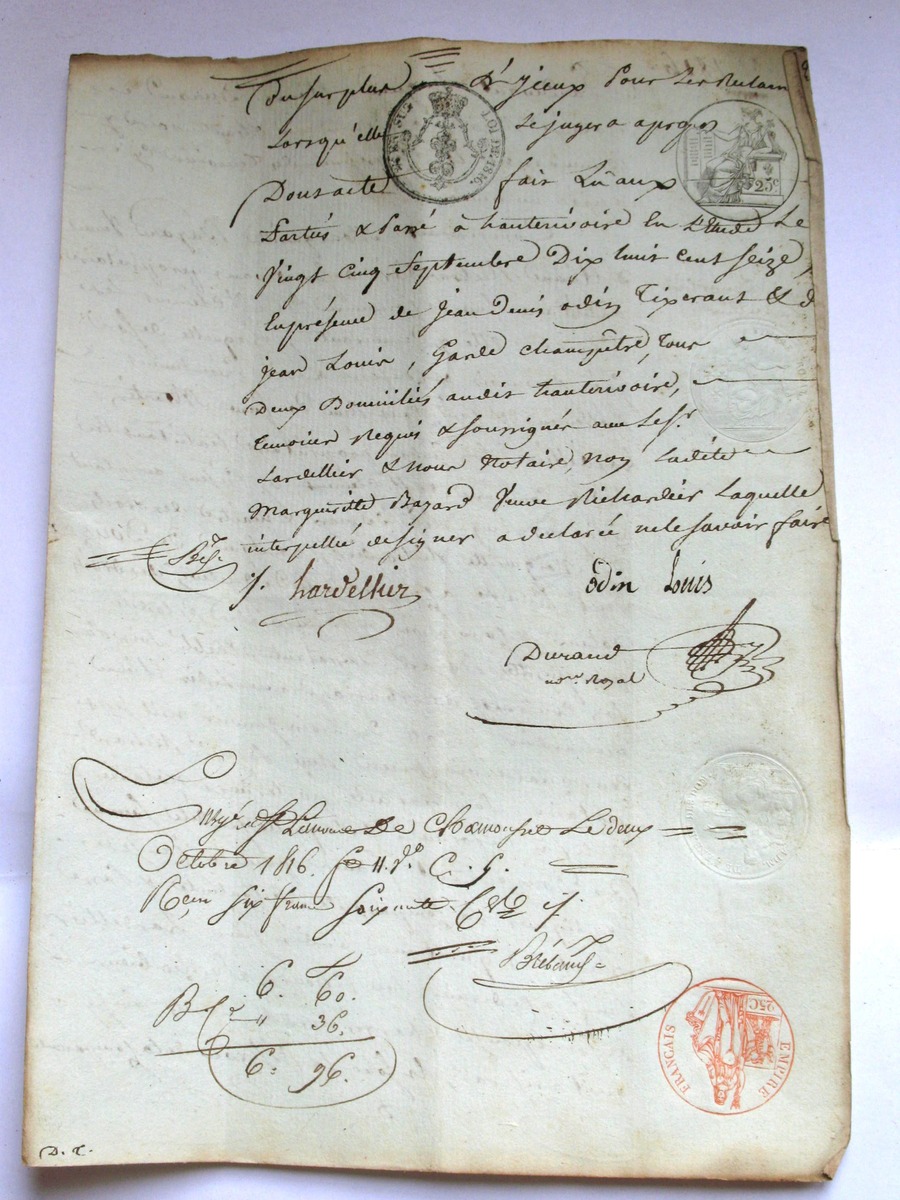 Du surplus D'Yceux Pour Les Reclam
Lorsqu'elle Le jugera apropos
Dont acte fait Lû aux
Parties & Passé à hauterivoire En L'Etude Le
Vingt Cinq Septembre Dix huit Cent Seize,
En présence de Jean Denis odin Tixerant Et d
Jean Louis, Garde Champêtre, Tous
Deux Domiciliés audit hauterivoire,
Temoins Requis & Soussignés avec Le Sr.
Lardellier & nous Notaire, Non Ladite
Marguerite Bazard Veuve Richardier Laquelle
interpellée de signer a declaré ne le savoir faire
Lardellier
odin Louis
Durand
Royal
Enregé a St Laurent De Chamousset Le deux
Octobre 1816. fo 11. Vo C. 6.
Recu Six francs Soixante Cmes
6. 60.
36.
6. 96.
LOI DE 1816.
25c
EMPIRE
FRANÇAIS
25C
D. T.